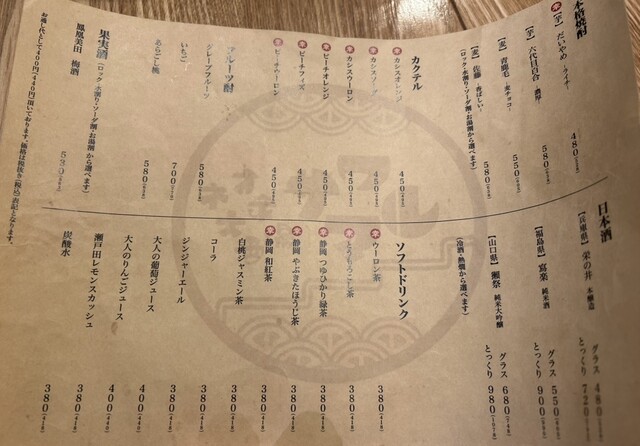 本格焼酎
【芋】だいやめ -ライチ- 480
【芋】六代目百合 -濃厚- 580
【麦】青鹿毛 -麦チョコ- 550
【麦】佐藤 -香ばしい- 580
(ロック・水割り・ソーダ割・お湯割から選べます)
カクテル
カシスオレンジ 450
カシスソーダ 450
カシスウーロン 450
ピーチオレンジ 450
ピーチフィズ 450
ピーチウーロン 450
フルーツ酎
グレープフルーツ 580
いちご 700
あらごし桃 580
果実酒(ロック・水割り・ソーダ割・お湯割から選べます)
鳳凰美田 梅酒 530
お通し代として400円(440円)頂いております。価格は税抜き(税込)表記となります。
日本酒
【兵庫県】栄の井 本醸造 グラス 480
とっくり 720
【福島県】寫楽 純米酒 グラス 550
とっくり 900
【山口県】獺祭 純米大吟醸 グラス 680
とっくり 980
(冷酒・熱燗から選べます)
ソフトドリンク
ウーロン茶 380(418)
とうもろこし茶 380(418)
静岡 つゆひかり緑茶 380(418)
静岡 やぶきたほうじ茶 380(418)
静岡 和紅茶 380(418)
白桃ジャスミン茶 380(418)
コーラ 380(418)
ジンジャーエール 380(418)
大人の葡萄ジュース 440
大人のりんごジュース 400
瀬戸田レモンスカッシュ 380(418)
炭酸水 380(418)